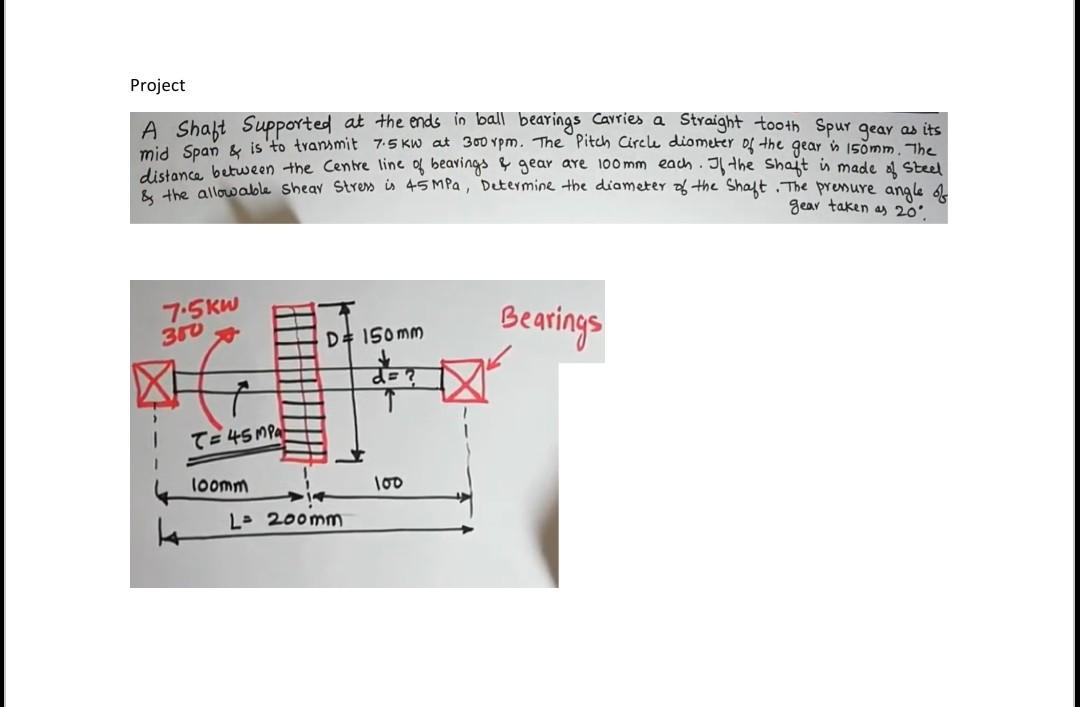 Project
A Shaft Supported at the ends in ball bearings Carries a Straight tooth Spur gear as its
mid Span & is to transmit 7.5 KW at 300 rpm. The Pitch Circle diameter of the gear is 150mm. The
distance between the Centre line of bearings & gear are 100mm each. If the Shaft is made of Steel
& the allowable Shear Stress is 45 MPa, Determine the diameter of the Shaft. The pressure angle of
gear taken as 20°.
7.5KW
300
D= 150mm
Bearings
d= ?
τ= 45MPa
100mm
100
L= 200mm